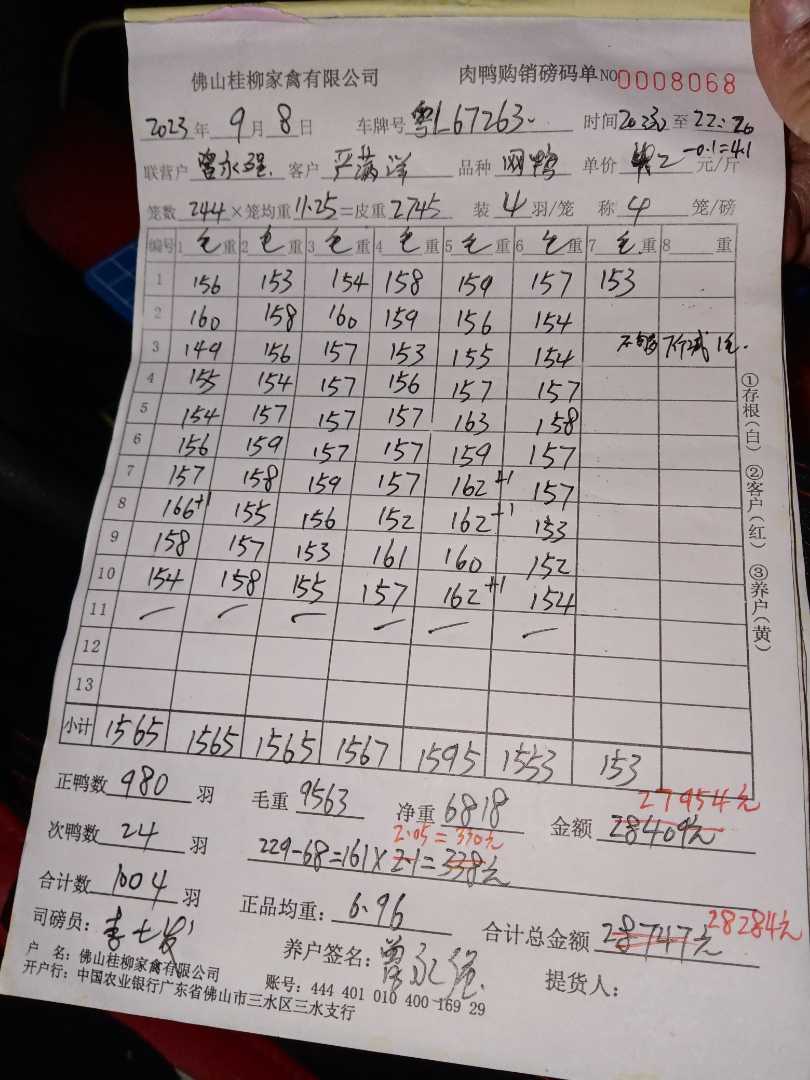 佛山桂柳家禽有限公司 肉鸭购销磅码单 NO0008068
2023年 9月 8日 车牌号 粤L67263 时间 2030 至 22:20
联营户 曾永强 客户 严满洋 品种 网鸭 单价 2 -0.1=4.1 元/斤
笼数 244×笼均重 11.25=皮重 2745 装 4 羽/笼 称 4 笼/磅
编号 1 毛重 2 毛重 3 毛重 4 毛重 5 毛重 6 毛重 7 毛重 8 重
1 156 153 154 158 159 157 153
2 160 158 160 159 156 154
3 149 156 157 153 155 154 不够 减
4 155 154 157 156 157 157
5 154 157 157 157 163 158
6 156 159 157 157 159 157
7 157 158 159 157 162+1 157
8 166+1 155 156 152 162+1 153
9 158 157 153 161 160 152
10 154 158 155 157 162+1 154
11 — — — — — —
12
13
小计 1565 1565 1565 1567 1595 1553 153
①存根(白) ②客户(红) ③养户(黄)
27954元
正鸭数 980 羽 毛重 9563 净重 6818 金额 28409元
2.05=330元
次鸭数 24 羽 229-68=161×2.1=338元
合计数 1004 羽 正品均重: 6.96 合计总金额 28747元 28284元
司磅员: 李七发 养户签名: 曾永强 提货人:
户 名: 佛山桂柳家禽有限公司 账号: 444 401 010 400 169 29
开户行: 中国农业银行广东省佛山市三水区三水支行